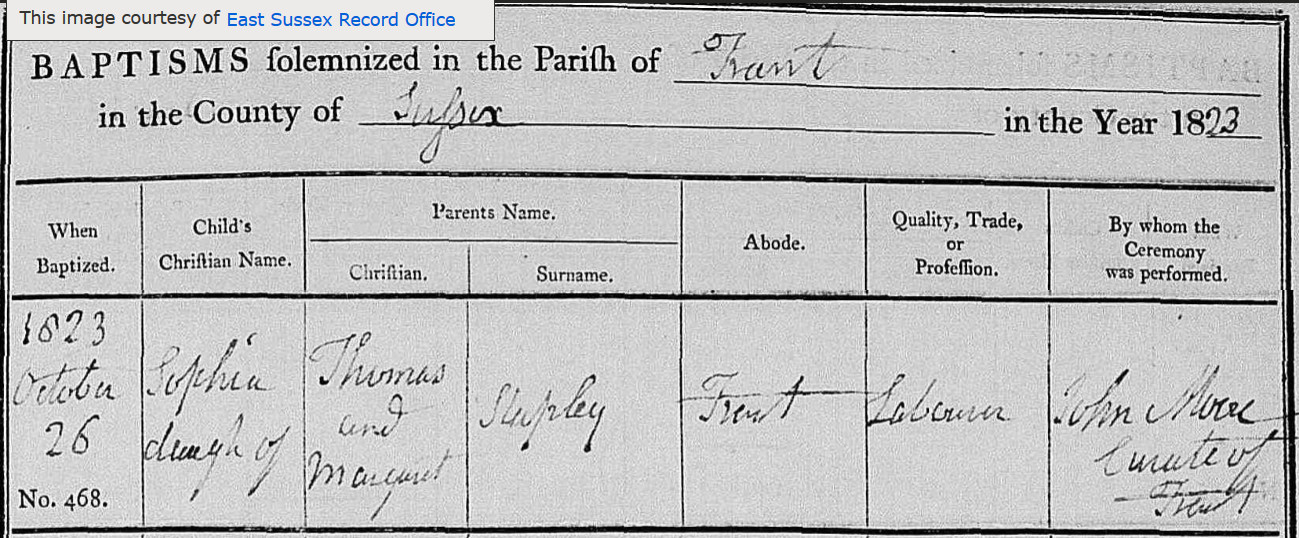 This image courtesy of East Sussex Record Office
BAPTISMS solemnized in the Parish of Frant
in the County of Sussex in the Year 1823
When
Baptized.
Child's
Christian Name.
Parents Name.
Christian.
Surname.
Abode.
Quality, Trade,
or
Profession.
By whom the
Ceremony
was performed.
1823
October
26
No. 468.
Sophia
daugh of
Thomas
and
Margaret
Stapley
Frant
Labourer
John Moore
Curate of
Frant